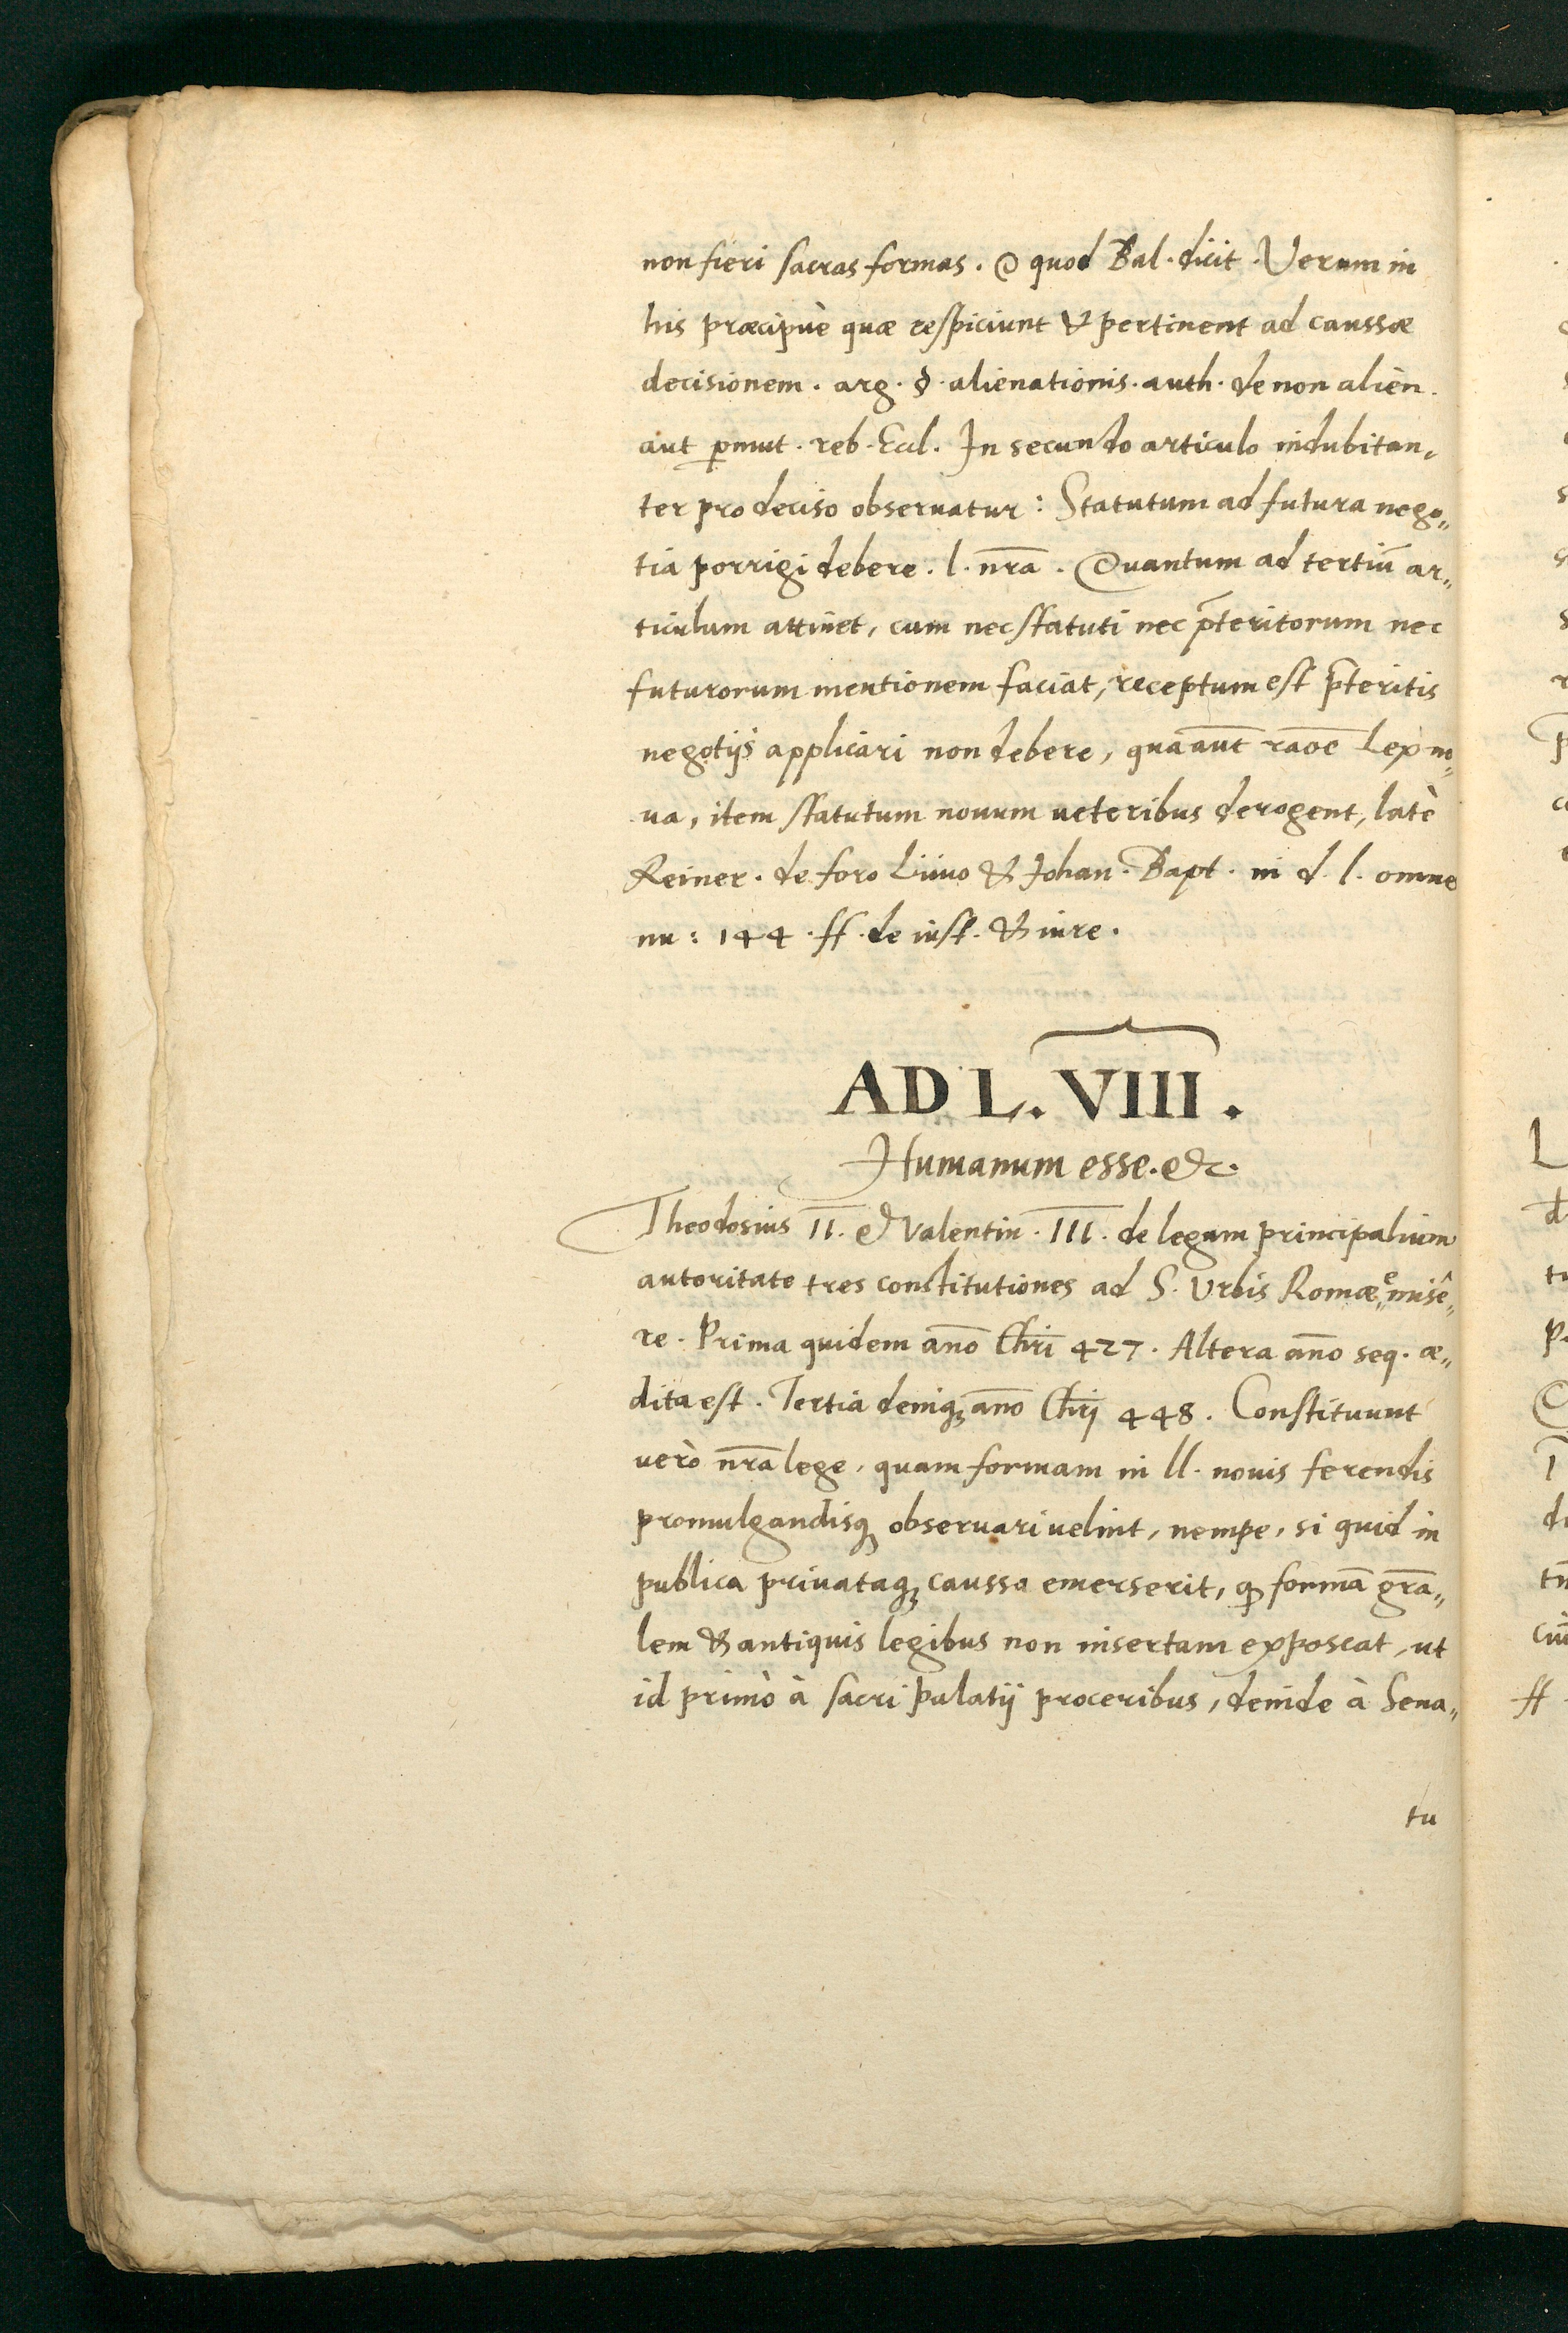 non fieri sacras formas. @ quod Bal. dicit. Verum in
his præcipuè quæ respiciunt & pertinent ad caussæ
decisionem. arg. §. alienationis. auth. de non alien.
aut p̱mut. reb. Eccl. In secundo articulo indubitan„
ter pro deciso obseruatur: Statutum ad futura nego„
tia porrigi debere. l. nr̄a. Quantum ad tertiū ar„
ticulum attinet, cum nec statuti nec p̄teritorum nec
futurorum mentionem faciat, receptum est p̄teritis
negotijs applicari non debere, qua aūt raōe Lex no„
ua, item statutum nouum ueteribus derogent, latè
Reiner. de foro Liuio & Johan. Bapt. in d. l. omne
nu: 144. ff. de iust. & iure.
AD L. VIII.
Humanum esse. &c.
Theodosius II. & Valentin. III. de legum principalium
autoritate tres constitutiones ad S. Urbis Romæ„ emisê„
re. Prima quidem año Chr̄i 427. Altera año seq. æ„
dita est. Tertia deniq; año Chr̄j 448. Constituunt
uerò nr̄a lege, quam formam in ll. nouis ferendis
promulgandisq; obseruari uelint, nempe, si quid in
publica priuataq; caussa emerserit, qđ formā gr̄a„
lem & antiquis legibus non insertam exposcat, ut
id primò à sacri palatij proceribus, deinde à Sena„
tu